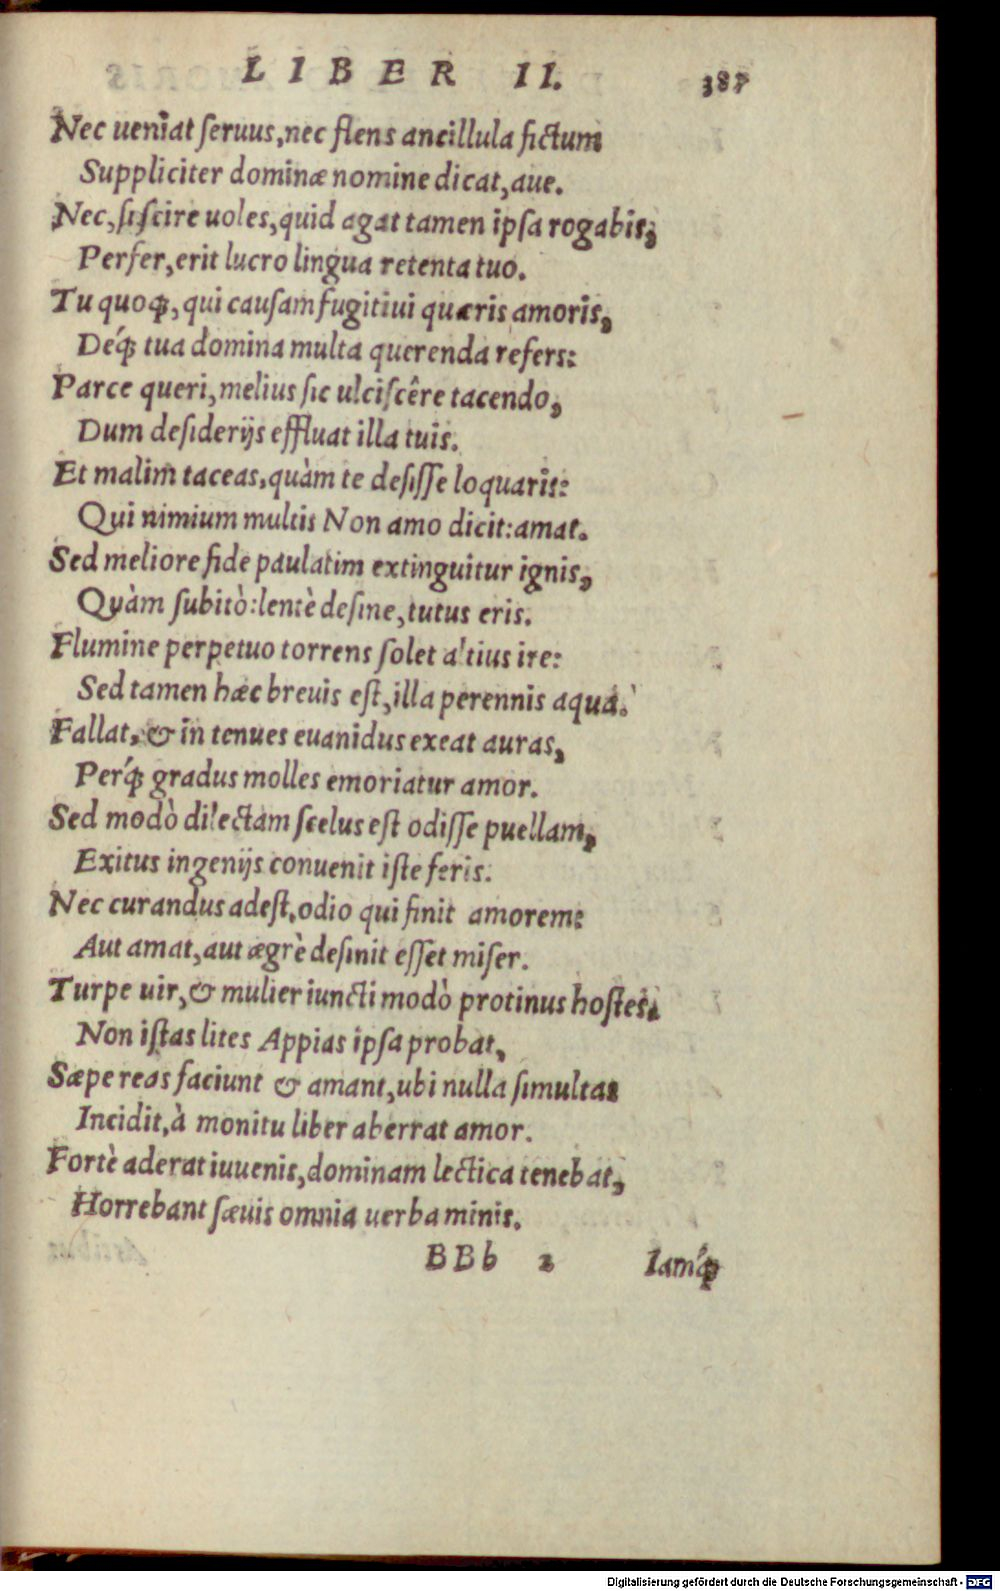 LIBER II. 387
Nec ueniat ſeruus,nec flens ancillula fictum
Suppliciter dominæ nomine dicat,aue.
Nec,ſi ſcire uoles,quid agat tamen ipſa rogabis;
Perfer,erit lucro lingua retenta tuo.
Tu quoq;,qui cauſam fugitiui quæris amoris,
Deq́; tua domina multa querenda refers:
Parce queri,melius ſic ulciſcêre tacendo,
Dum deſiderijs effluat illa tuis.
Et malim taceas,quàm te deſiſſe loquaris:
Qui nimium multis Non amo dicit:amat.
Sed meliore fide paulatim extinguitur ignis,
Quàm ſubitò:lentè deſine,tutus eris.
Flumine perpetuo torrens ſolet altius ire:
Sed tamen hæc breuis eſt,illa perennis aqua.
Fallat,& in tenues euanidus exeat auras,
Perq́; gradus molles emoriatur amor.
Sed modò dilectam ſcelus eſt odiſſe puellam,
Exitus ingenijs conuenit iſte feris.
Nec curandus adeſt,odio qui finit amorem:
Aut amat,aut ægrè deſinit eſſet miſer.
Turpe uir,& mulier iuncti modò protinus hoſtes.
Non iſtas lites Appias ipſa probat,
Sæpe reas faciunt & amant,ubi nulla ſimultas
Incidit,à monitu liber aberrat amor.
Fortè aderat iuuenis,dominam lectica tenebat,
Horrebant ſæuis omnia uerba minis.
BBb 2 Iamq́;
Digitalisierung gefördert durch die Deutsche Forschungsgemeinschaft - DFG